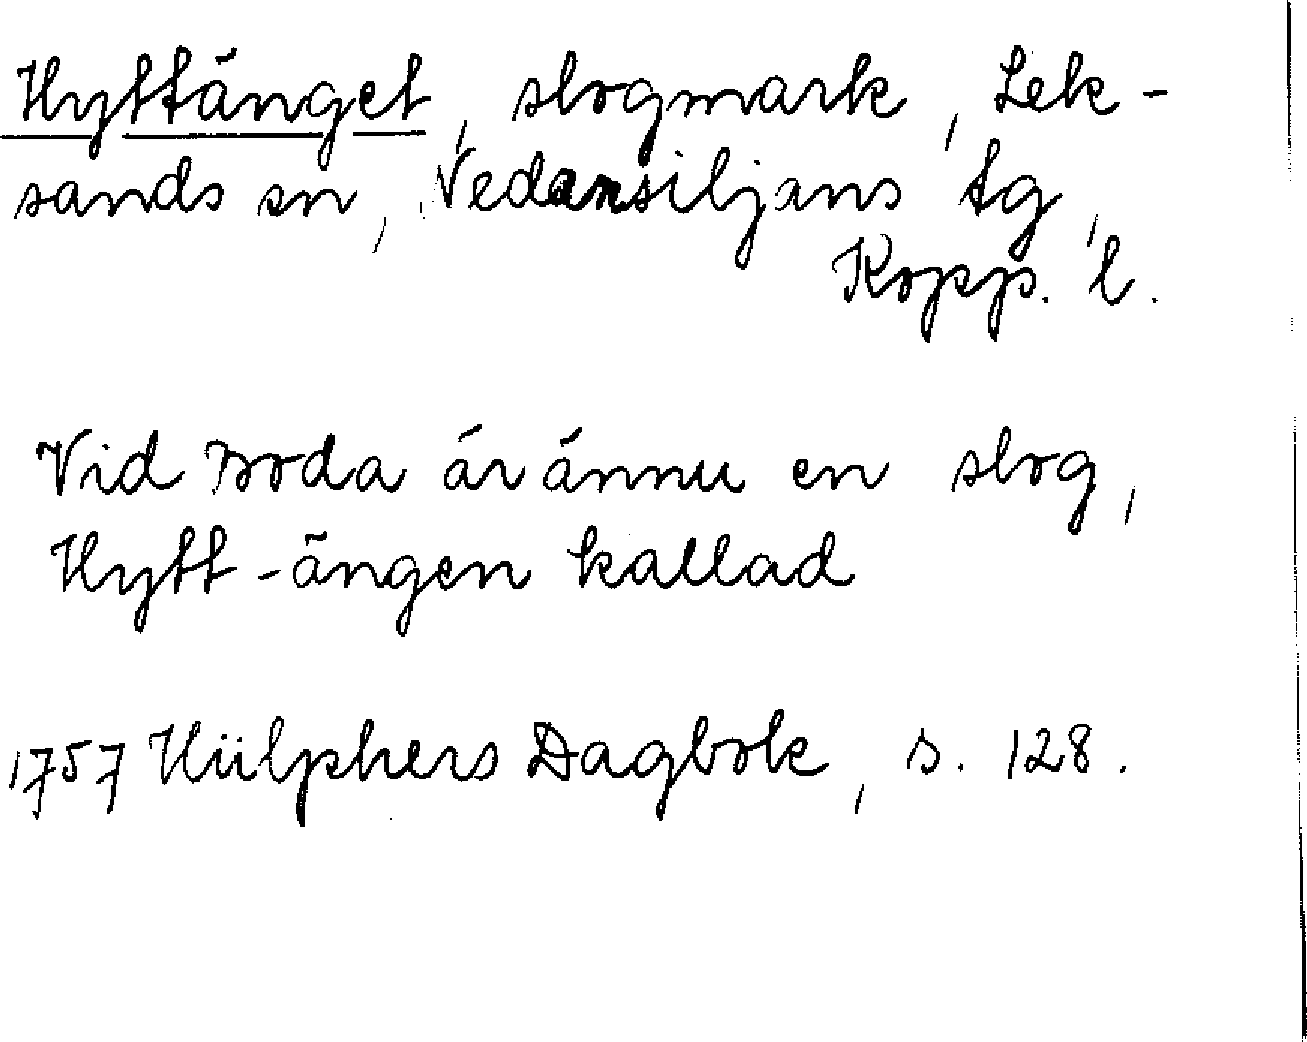 Hyttänget, slogmark, Lek-
sands sn, Vedansiljans tg,
Kopp. l.
Vid Boda är ännu en slog,
Hytt-ängen kallad
1757 Hülphers Dagbok, s. 128.